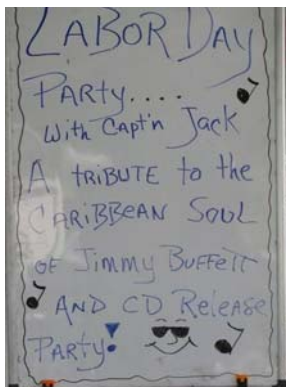 LABOR DAY
PARTY....
With Capt'n Jack
A TRIBUTE to the
CARIBBEAN SOUL
OF Jimmy BUFFETT
AND CD Release
PARTY!